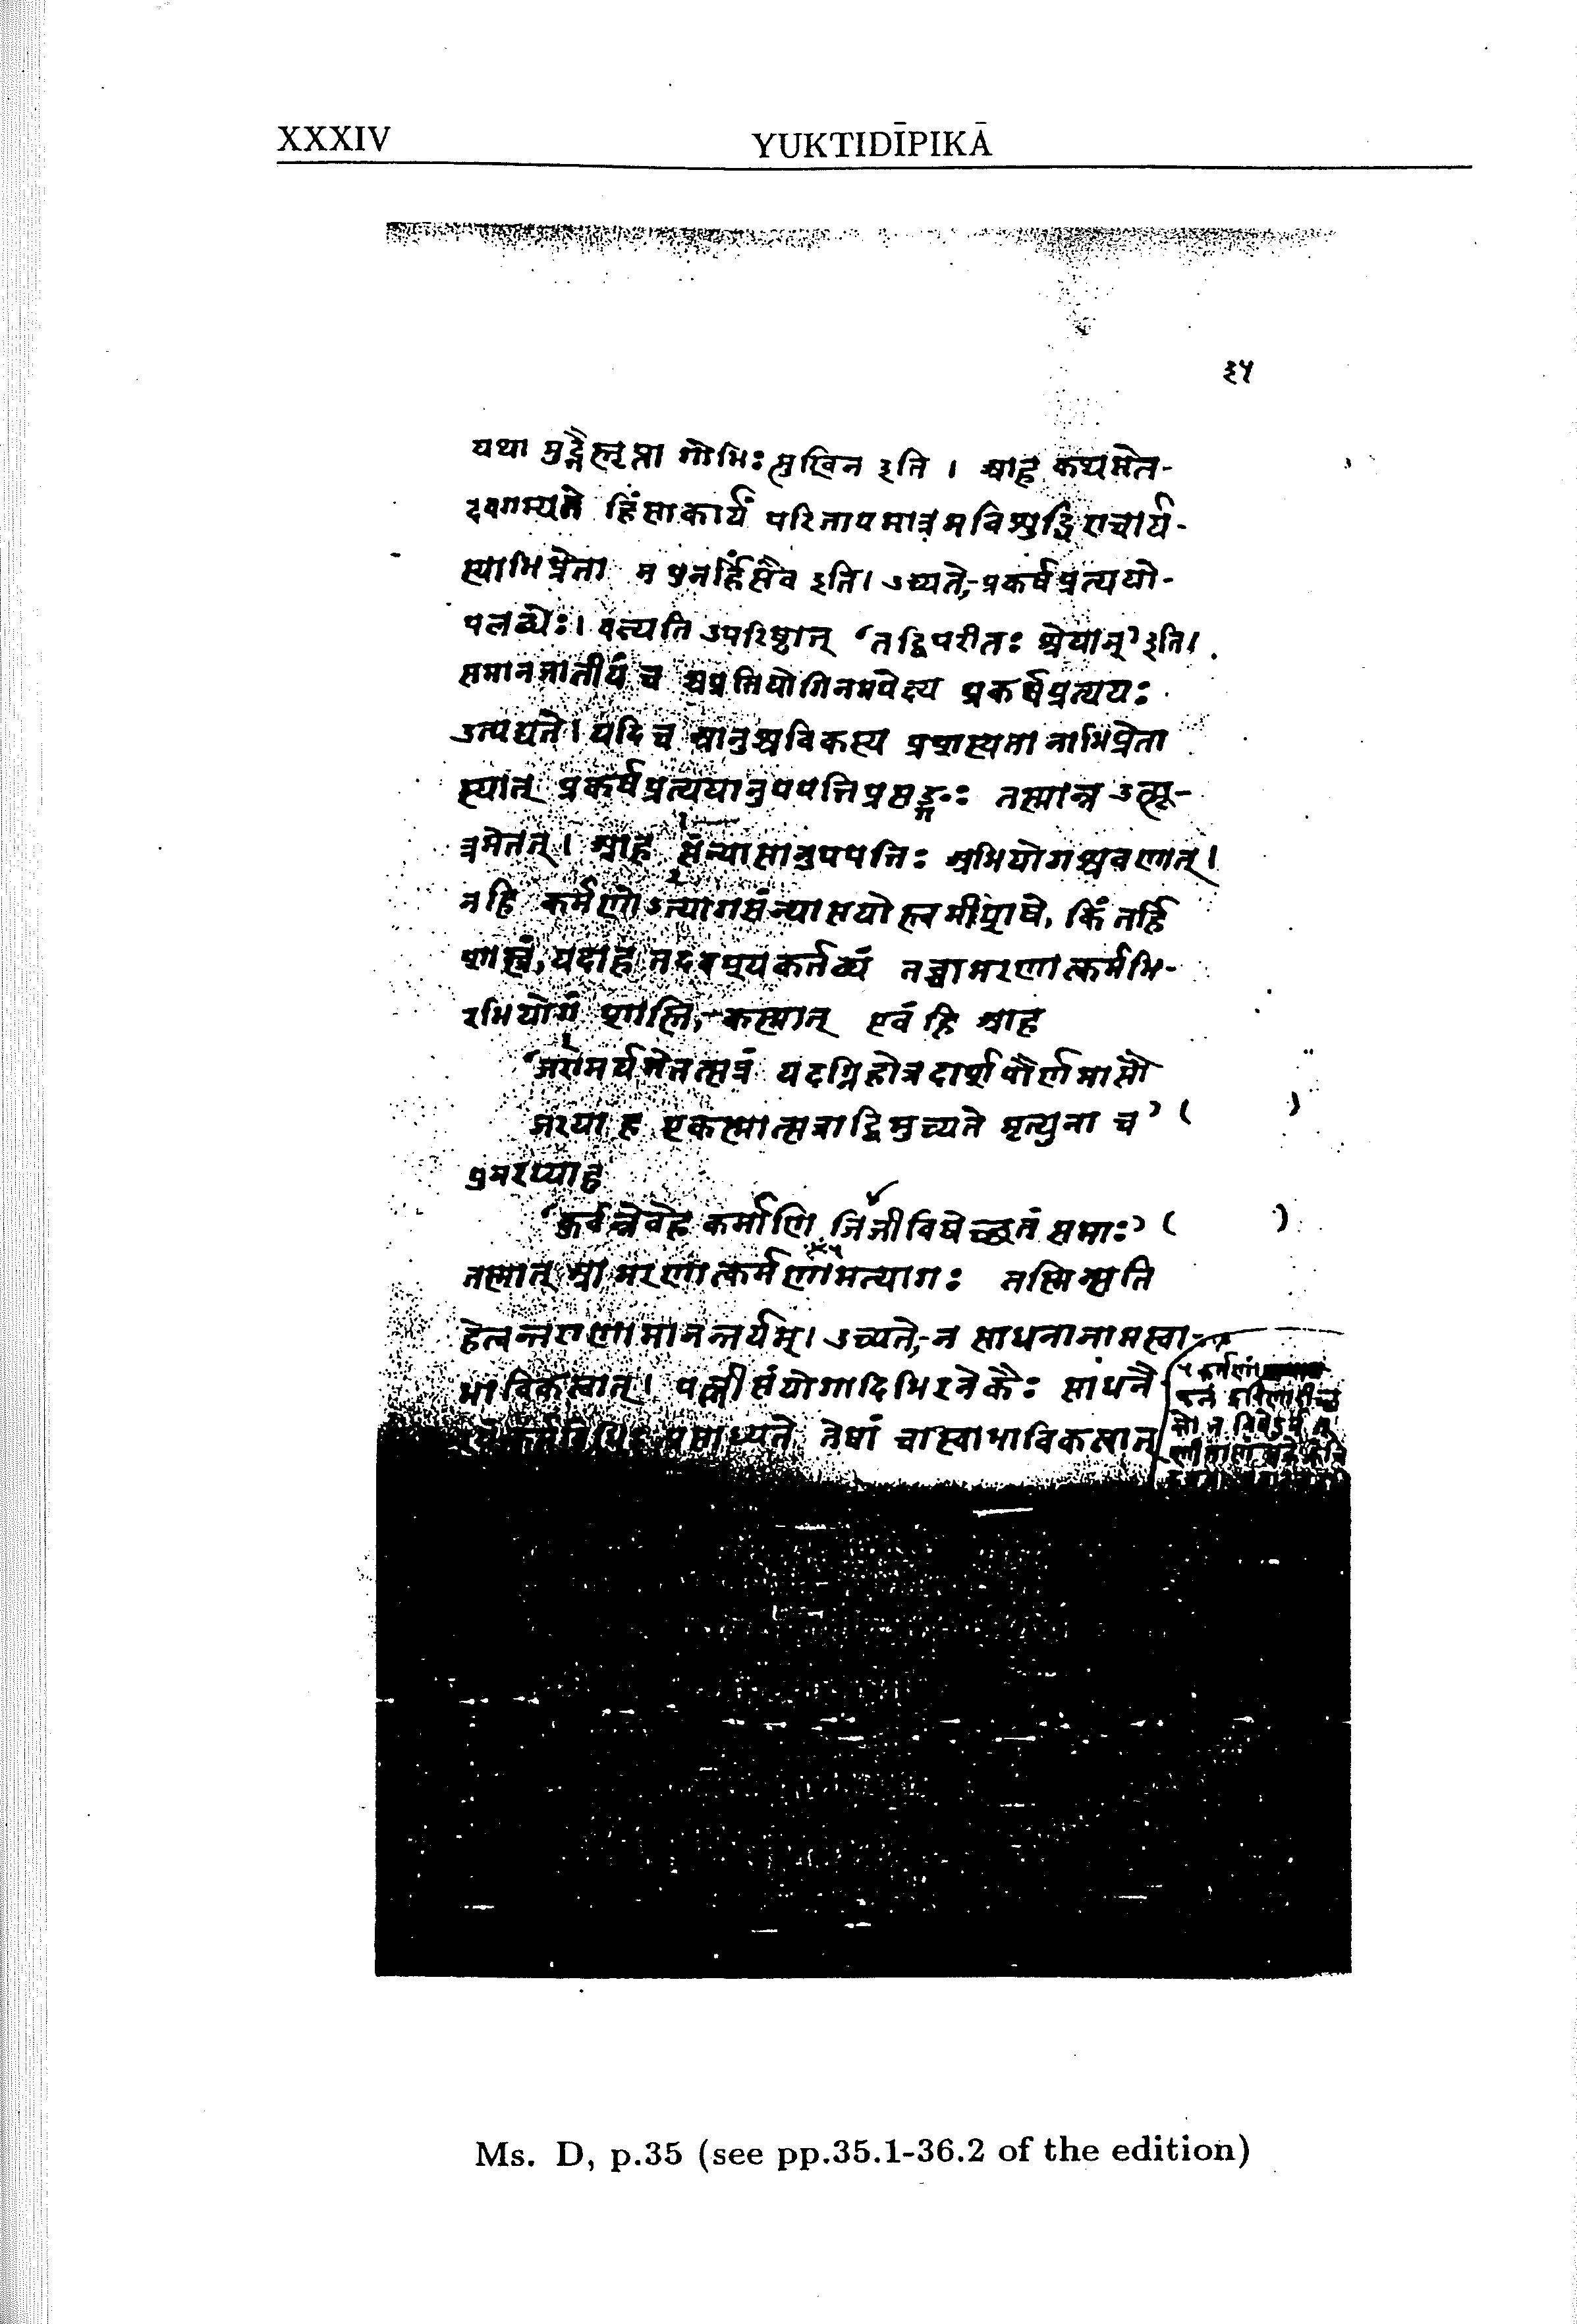 XXXIV YUKTIDĪPIKĀ
३५
यथा मुद्गैस्तृप्ता गोभिः सुखिन इति । आह कथमेत-
दवगम्यते हिंसाकार्यं परितापमात्रमविशुद्धिराचार्य-
स्याभिप्रेता न पुनर्हिंसैव इति। उच्यते,- प्रकर्षप्रत्ययो-
पलब्धेः। वक्ष्यति उपरिष्टात् ‘तद्विपरीतः श्रेयान्’ इति।
समानजातीयं च प्रतियोगिनमपेक्ष्य प्रकर्षप्रत्ययः
उत्पद्यते। यदि च आनुश्रविकस्य प्रशस्यता नाभिप्रेता
स्यात् प्रकर्षप्रत्ययानुपपत्तिप्रसङ्गः तस्मान्न उत्सू-
त्रमेतत्। आह संन्यासानुपपत्तिः अभियोगश्रवणात्।
न हि कर्मणोऽत्यागसंन्यासयोस्त्वमीशिषे, किं तर्हि
शास्त्रं, यदाह तदवश्यकर्तव्यं तच्चामरणात्कर्मभि-
रभियोगं शास्ति,- कस्मात् एवं हि आह
‘जरामर्यमेतत्सत्रं यदग्निहोत्रदार्शपौर्णमासौ
जरया ह एकस्मात्सत्राद्विमुच्यते मृत्युना च’ ( )
पुनरप्याह
‘कुर्वन्नेवेह कर्माणि जिजीविषेच्छतं समाः’ ( )
तस्मात् आ मरणात्कर्मणामत्यागः तस्मिन्सति
हेत्वन्तराणामानन्तर्यम्। उच्यते,- न साधनानामस्वा-
भाविकत्वात्। पत्नीसंयोगादिभिरनेकैः साधनै
प्रसाध्यते तेषां चास्वाभाविकत्वात्
Ms. D, p.35 (see pp.35.1-36.2 of the edition)